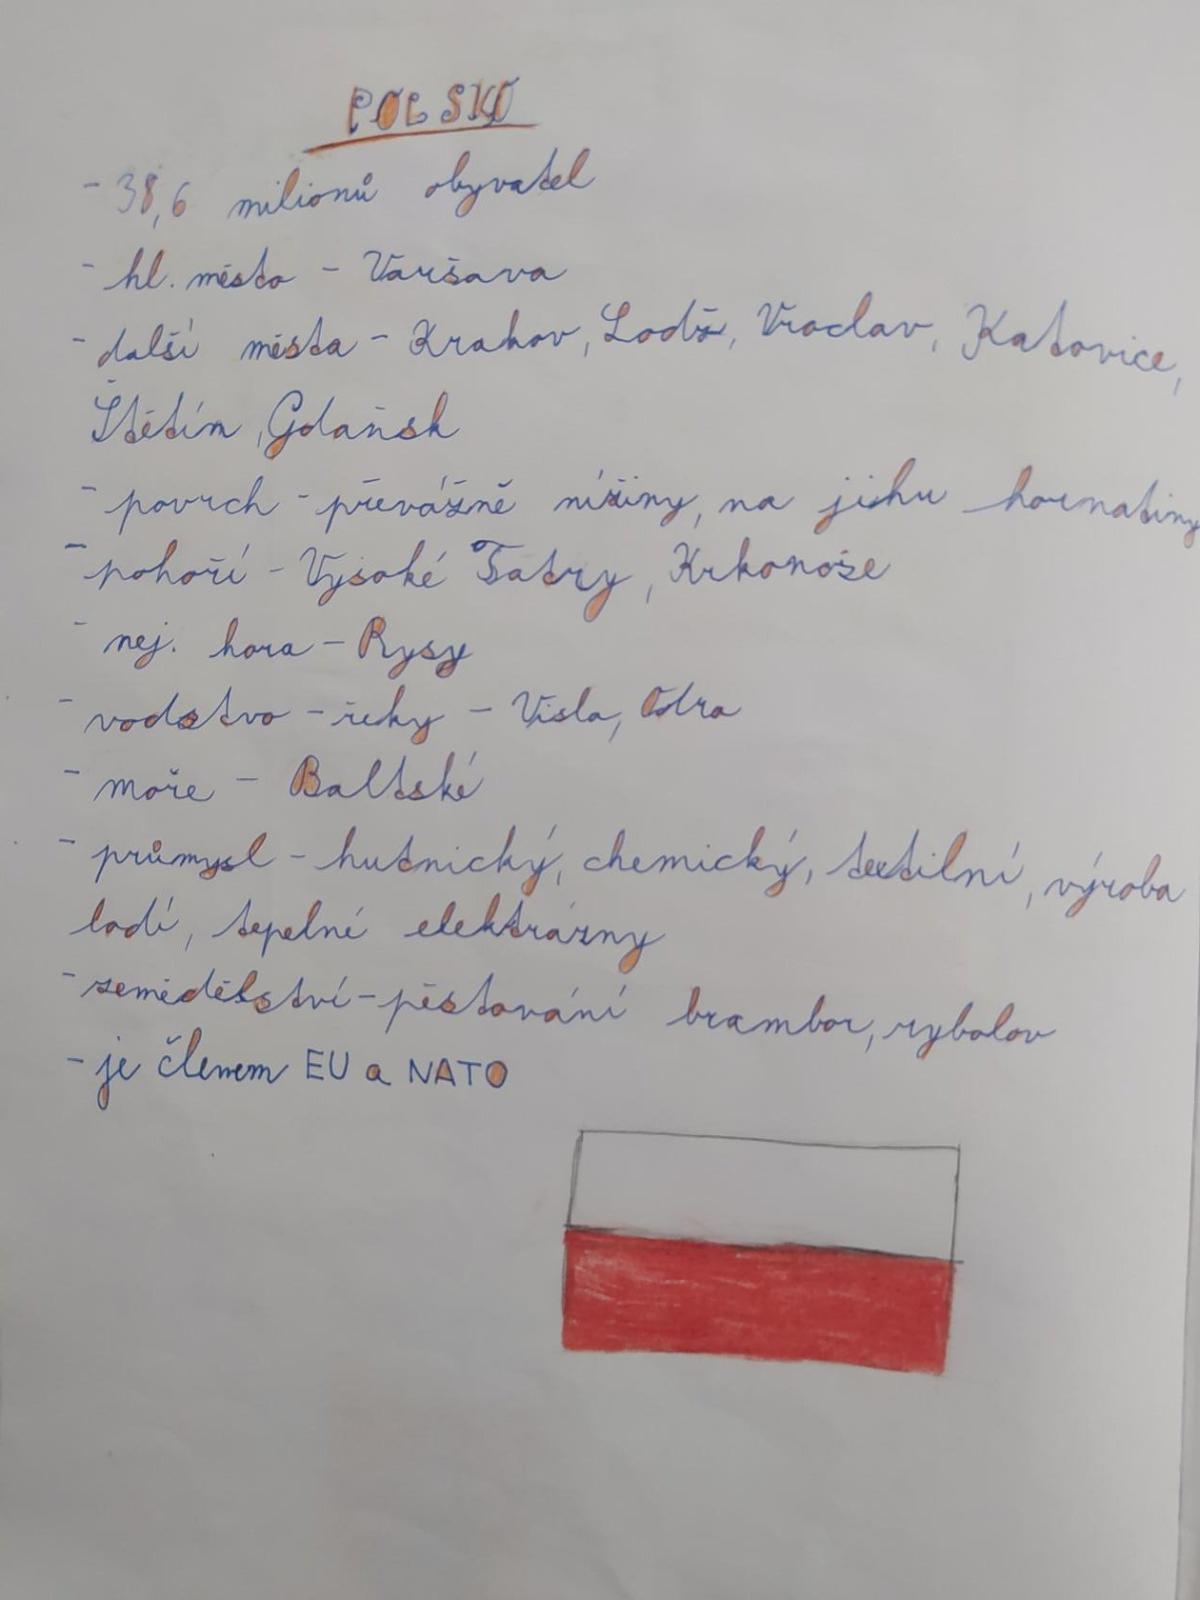 POLSKO
- 38,6 milionů obyvatel
- hl. město - Varšava
- další města - Krakov, Lodž, Vroclav, Katovice,
Štětín, Gdaňsk
- povrch - převážně nížiny, na jihu hornatiny
- pohoří - Vysoké Tatry, Krkonoše
- nej. hora - Rysy
- vodstvo - řeky - Visla, Odra
- moře - Baltské
- průmysl - hutnický, chemický, textilní, výroba
lodí, tepelné elektrárny
- zemědělství - pěstování brambor, rybolov
- je členem EU a NATO